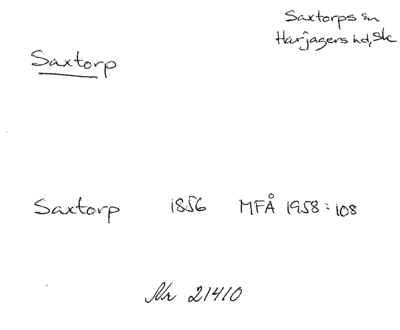 Saxtorps sn
Harjagers hd, Sk
Saxtorp
Saxtorp 1856 MFÅ 1958:108
Nr 21410